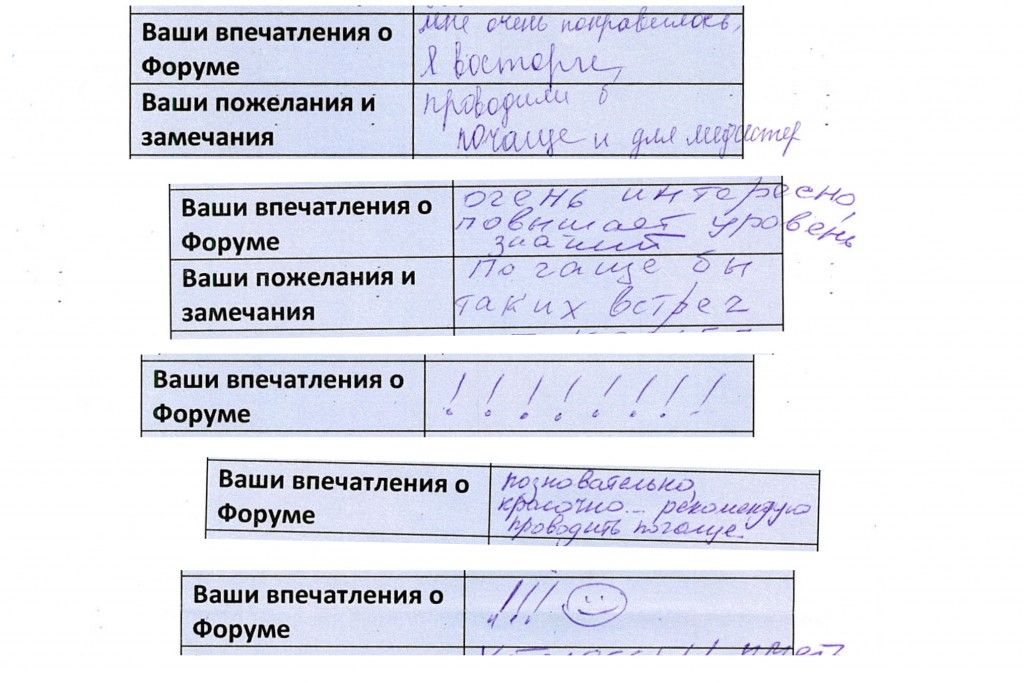 Ваши впечатления о
Форуме
мне очень понравилось,
Я восторге,
Ваши пожелания и
замечания
проводили б
почаще и для медсестер
Ваши впечатления о
Форуме
очень интересно,
повышает уровень
знаний
Ваши пожелания и
замечания
Почаще бы
таких встреч
Ваши впечатления о
Форуме
! ! ! ! ! ! ! !
Ваши впечатления о
Форуме
позновательно,
красочно... рекомендую
проводить почаще.
Ваши впечатления о
Форуме
!!! ☺